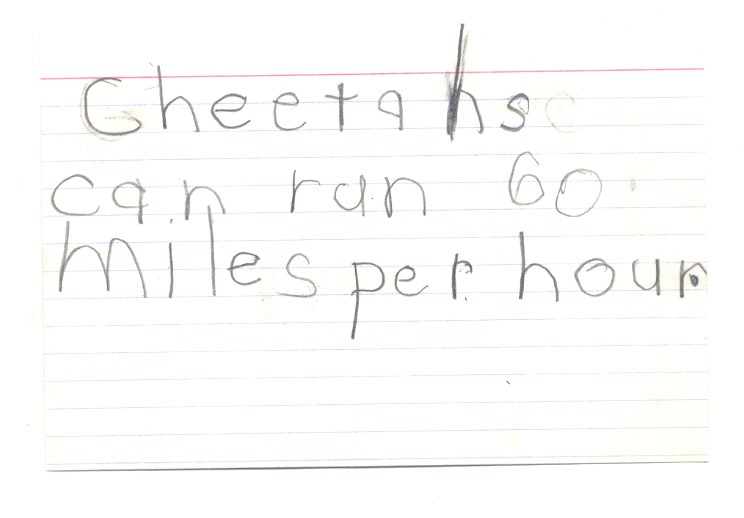 Cheetahs
can run 60
miles per hour.